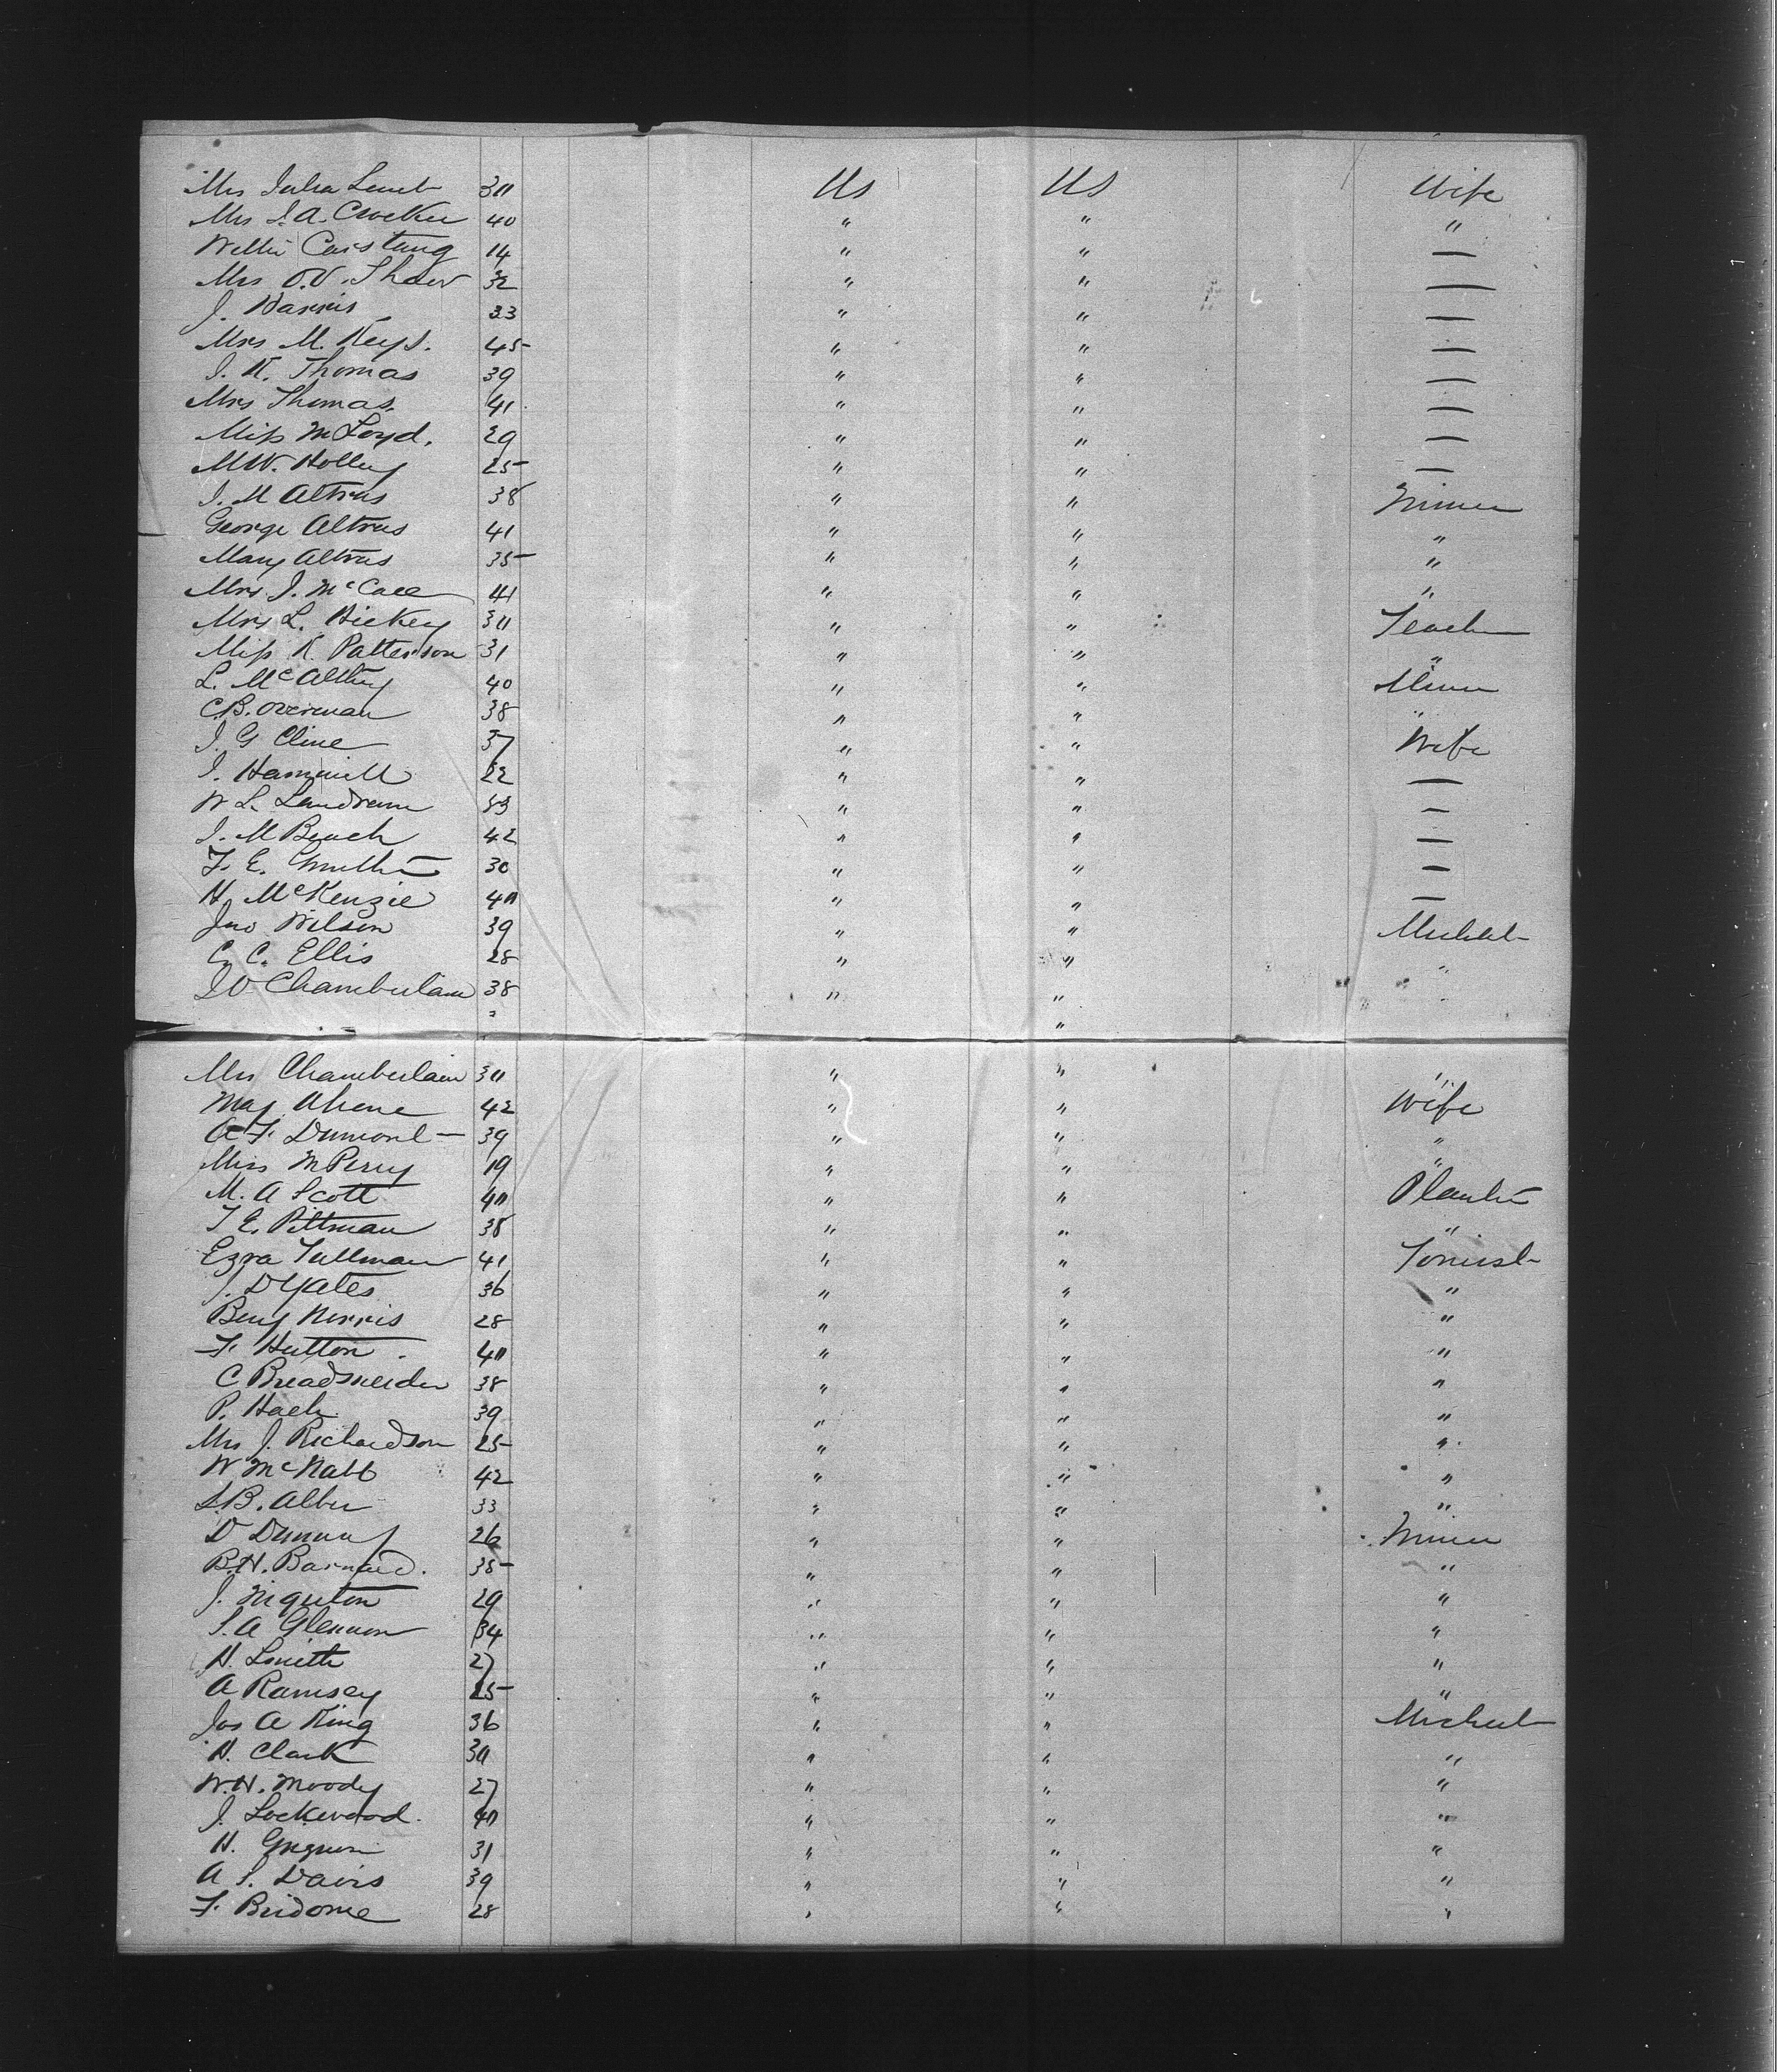 Mrs Julia 30 Us Us Wife
Mrs J. A. Crocker 40 " " "
Willie Carstang 14 " " —
Mrs O. V. Shaw 32 " " —
J. Harris 33 " " —
Mrs M. Keys. 45 " " —
J. K. Thomas 39 " " —
Mrs Thomas. 41 " " —
Miss M Loyd. 29 " " —
M W. Holley 25 " " —
J. M Altrus 38 " " Miner
George Altrus 41 " " "
Mary Altrus 35 " " "
Mrs J. McCall 41 " " "
Mrs L. Hickey 30 " " Teacher
Miss K. Patterson 31 " " "
L. 40 " " Miner
C. B. Overman 38 " " "
J. G Cline 37 " " Wife
J. Hammill 22 " " —
W L. Landrum 33 " " —
J. M Beach 42 " " —
F. E. 30 " " —
H. McKenzie 40 " " —
Jno Wilson 39 " "
C. C. Ellis 28 " " "
J V Chamberlain 38 " " "
"
Mrs Chamberlain 30 " " "
May 42 " " Wife
A F. Dumont 39 " " "
Miss M Perry 19 " " "
M. A Scott 40 " " Planter
T E. Pittman 38 " " "
Ezra Tullman 41 " " Tourist
J. D Yates 36 " " "
Benj Norris 28 " " "
F. Hutton. 40 " " "
C Breadsneider 38 " " "
P. Hach 39 " " "
Mrs J. Richardson 25 " " "
W McNabb 42 " " "
L. B. Alber 33 " " "
D 26 " " Miner
B. H. Barnard. 35 " " "
J. 29 " " "
S. A Glennon 34 " " "
H. Smith 27 " " "
A Ramsey 25 " " "
Jos A King 36 " "
H. Clark 30 " " "
W. H. Moody 27 " " "
J. Lockwood. 40 " " "
H. 31 " " "
A S. Davis 39 " " "
F. Bridome 28 " " "